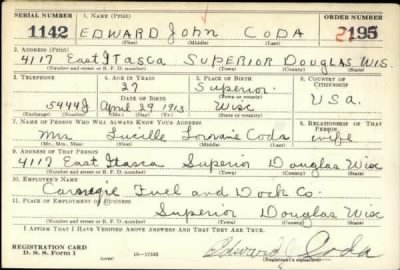 SERIAL NUMBER 1. NAME (Print) ORDER NUMBER
1142 EDWARD John CODA 2195
(First) (Middle) (Last)
2. ADDRESS (Print)
4117 East Itasca SUPERIOR DOUGLAS WIS.
(Number and street or R. F. D. number) (Town) (County) (State)
3. TELEPHONE 4. AGE IN YEARS 5. PLACE OF BIRTH 6. COUNTRY OF CITIZENSHIP
27 Superior
DATE OF BIRTH (Town or county)
5444J April 29 1913 Wisc USA.
(Exchange) (Number) (Mo.) (Day) (Yr.) (State or country)
7. NAME OF PERSON WHO WILL ALWAYS KNOW YOUR ADDRESS 8. RELATIONSHIP OF THAT PERSON
Mrs Lucille Lorraine Coda wife
(Mr., Mrs., Miss) (First) (Middle) (Last)
9. ADDRESS OF THAT PERSON
4117 East Itasca Superior Douglas Wisc
(Number and street or R. F. D. number) (Town) (County) (State)
10. EMPLOYER'S NAME
Carnegie Fuel and Dock Co.
11. PLACE OF EMPLOYMENT OR BUSINESS
Superior Douglas Wisc
(Number and street or R. F. D. number) (Town) (County) (State)
I AFFIRM THAT I HAVE VERIFIED ABOVE ANSWERS AND THAT THEY ARE TRUE.
REGISTRATION CARD
D. S. S. Form 1 (over) 16-17105 Edward J Coda
(Registrant's signature)